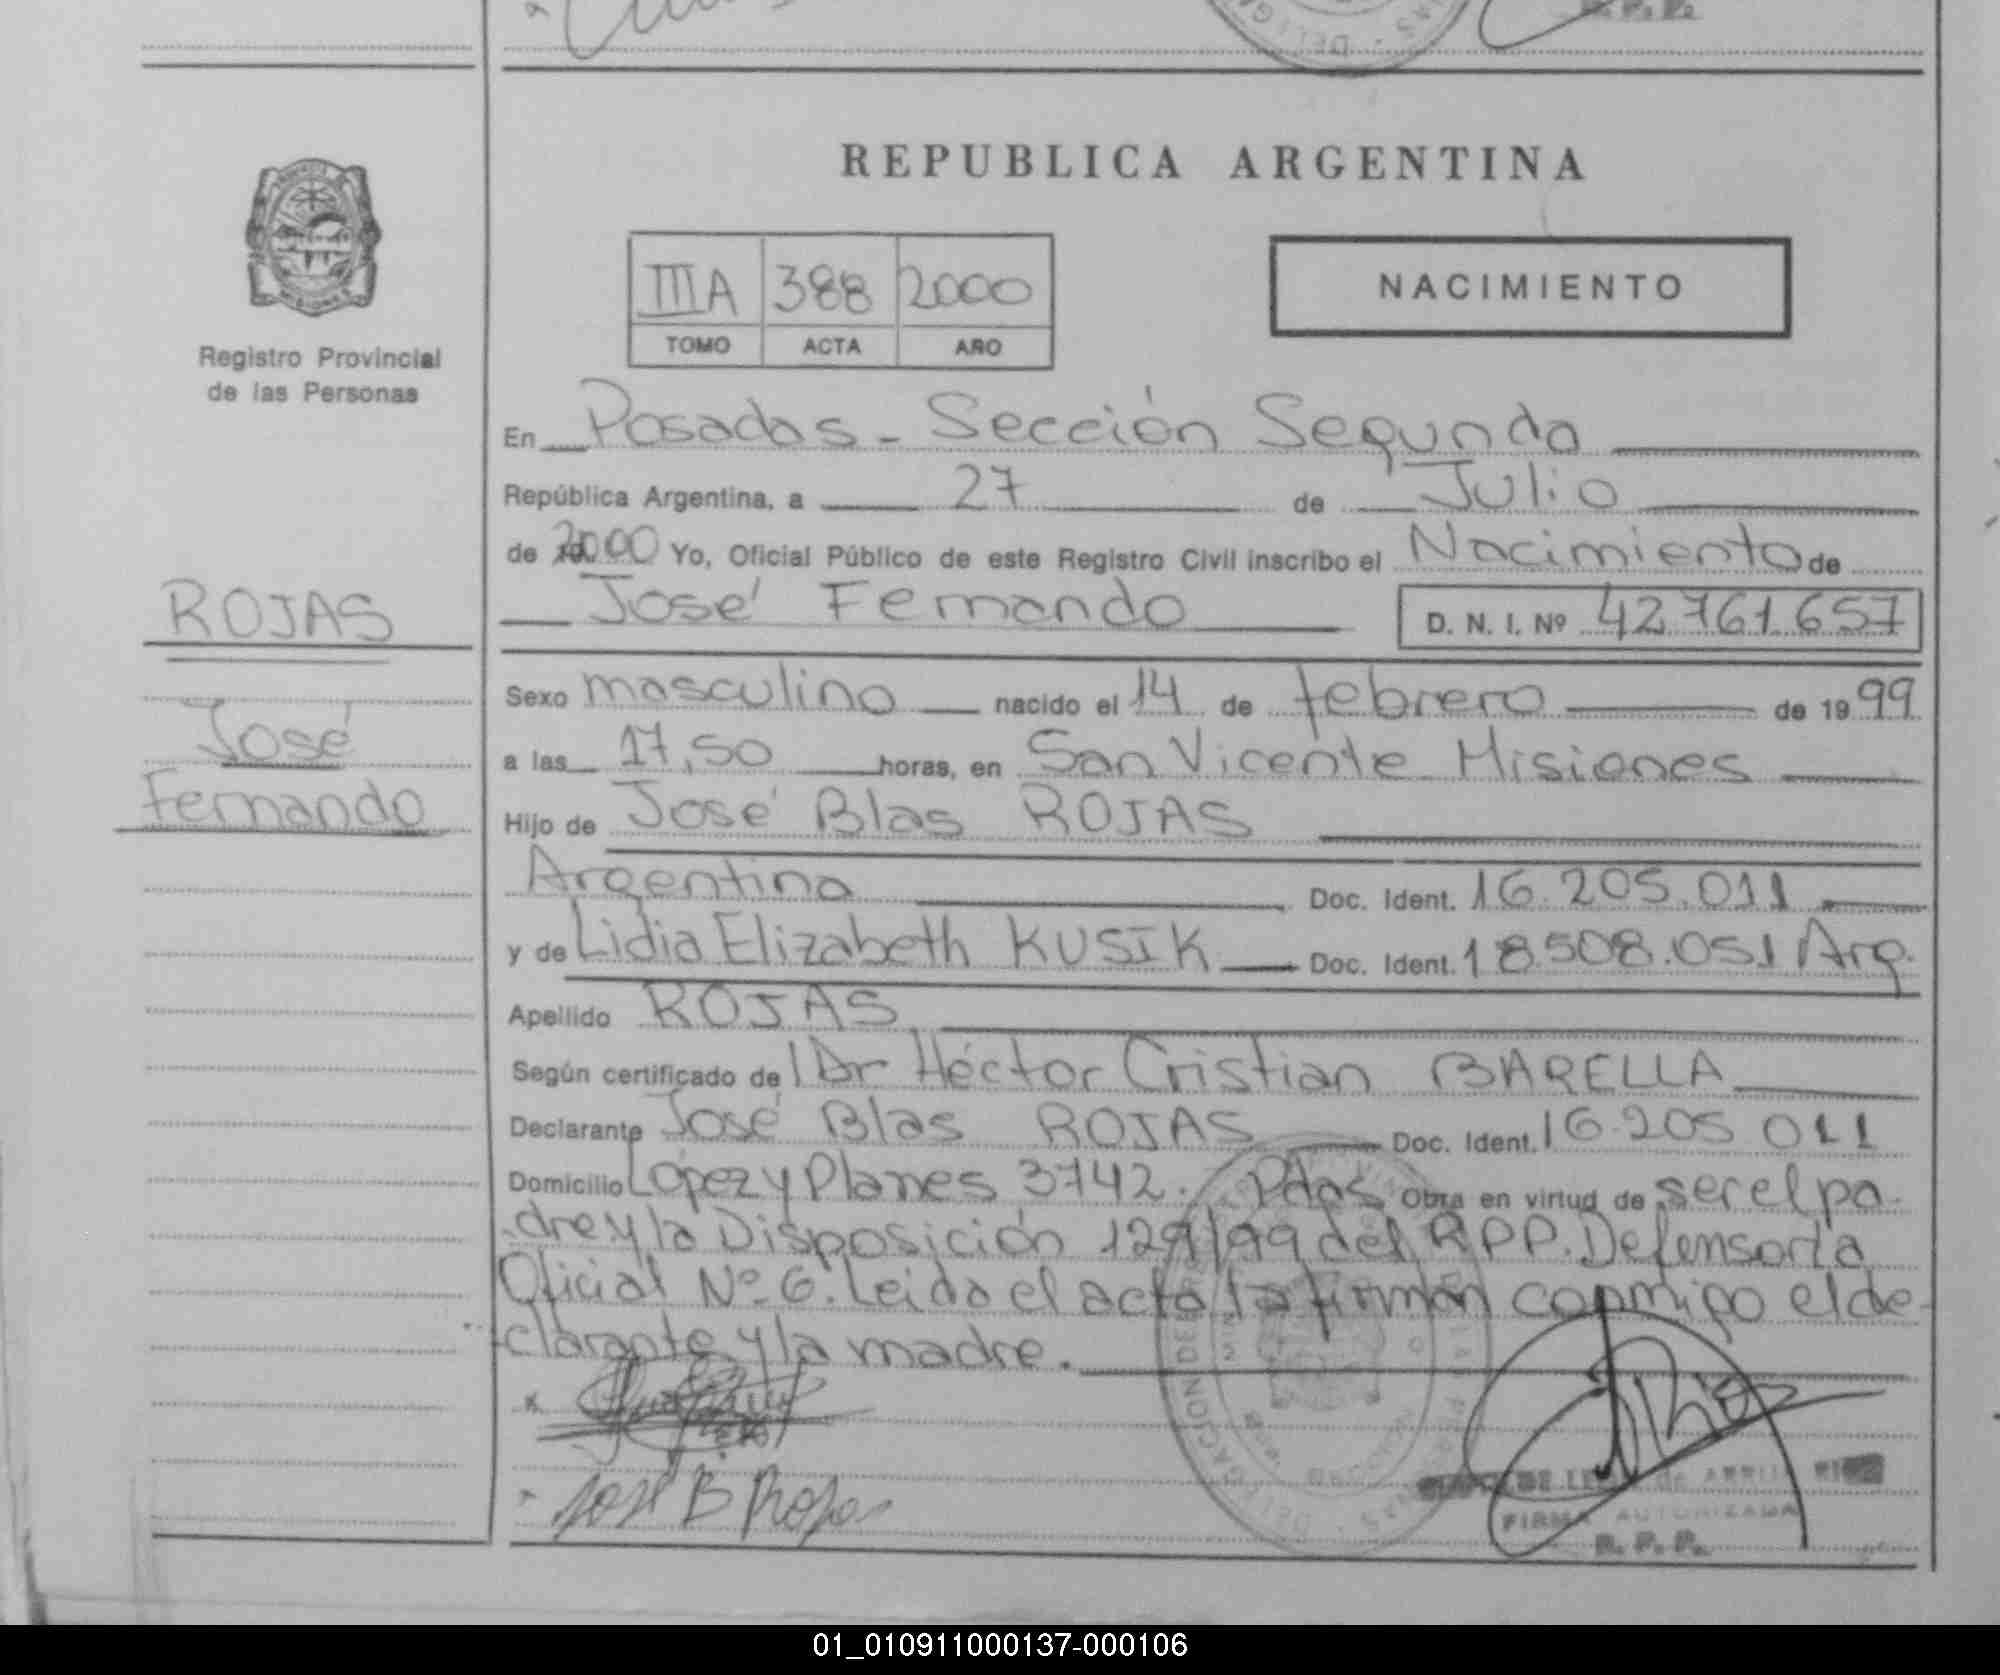 R. P. P.
REPUBLICA ARGENTINA
Registro Provincial
de las Personas
IIIA 388 2000
TOMO ACTA AÑO
NACIMIENTO
En Posadas - Sección Segunda
República Argentina, a 27 de Julio
de 2000 Yo, Oficial Público de este Registro Civil inscribo el Nacimiento de
José Fernando D. N. I. Nº 42761657
ROJAS
José
Fernando
Sexo masculino nacido el 14 de febrero de 1999
a las 17,50 horas, en San Vicente Misiones
Hijo de José Blas ROJAS
Argentina Doc. Ident. 16.205.011
y de Lidia Elizabeth KUSIK Doc. Ident. 18508.051 Arg.
Apellido ROJAS
Según certificado del Dr Héctor Cristian BARELLA
Declarante José Blas ROJAS Doc. Ident. 16.205 011
Domicilio López y Planes 3742. Pdas Obra en virtud de ser el pa-
dre y la Disposición 129/99 del RPP. Defensoría
Oficial Nº 6. Leida el acta la firman conmigo el de-
clarante y la madre.
José B Rojas
FIRMA AUTORIZADA
R. P. P.
01_010911000137-000106